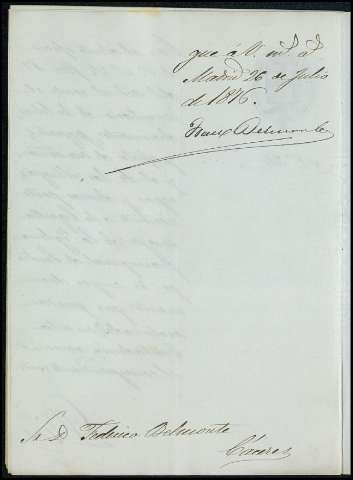 que á V. m.s a.s
Madrid 26 de Julio
de 1876.
Franco Belmonte
Sr. D. Federico Belmonte
Cáceres